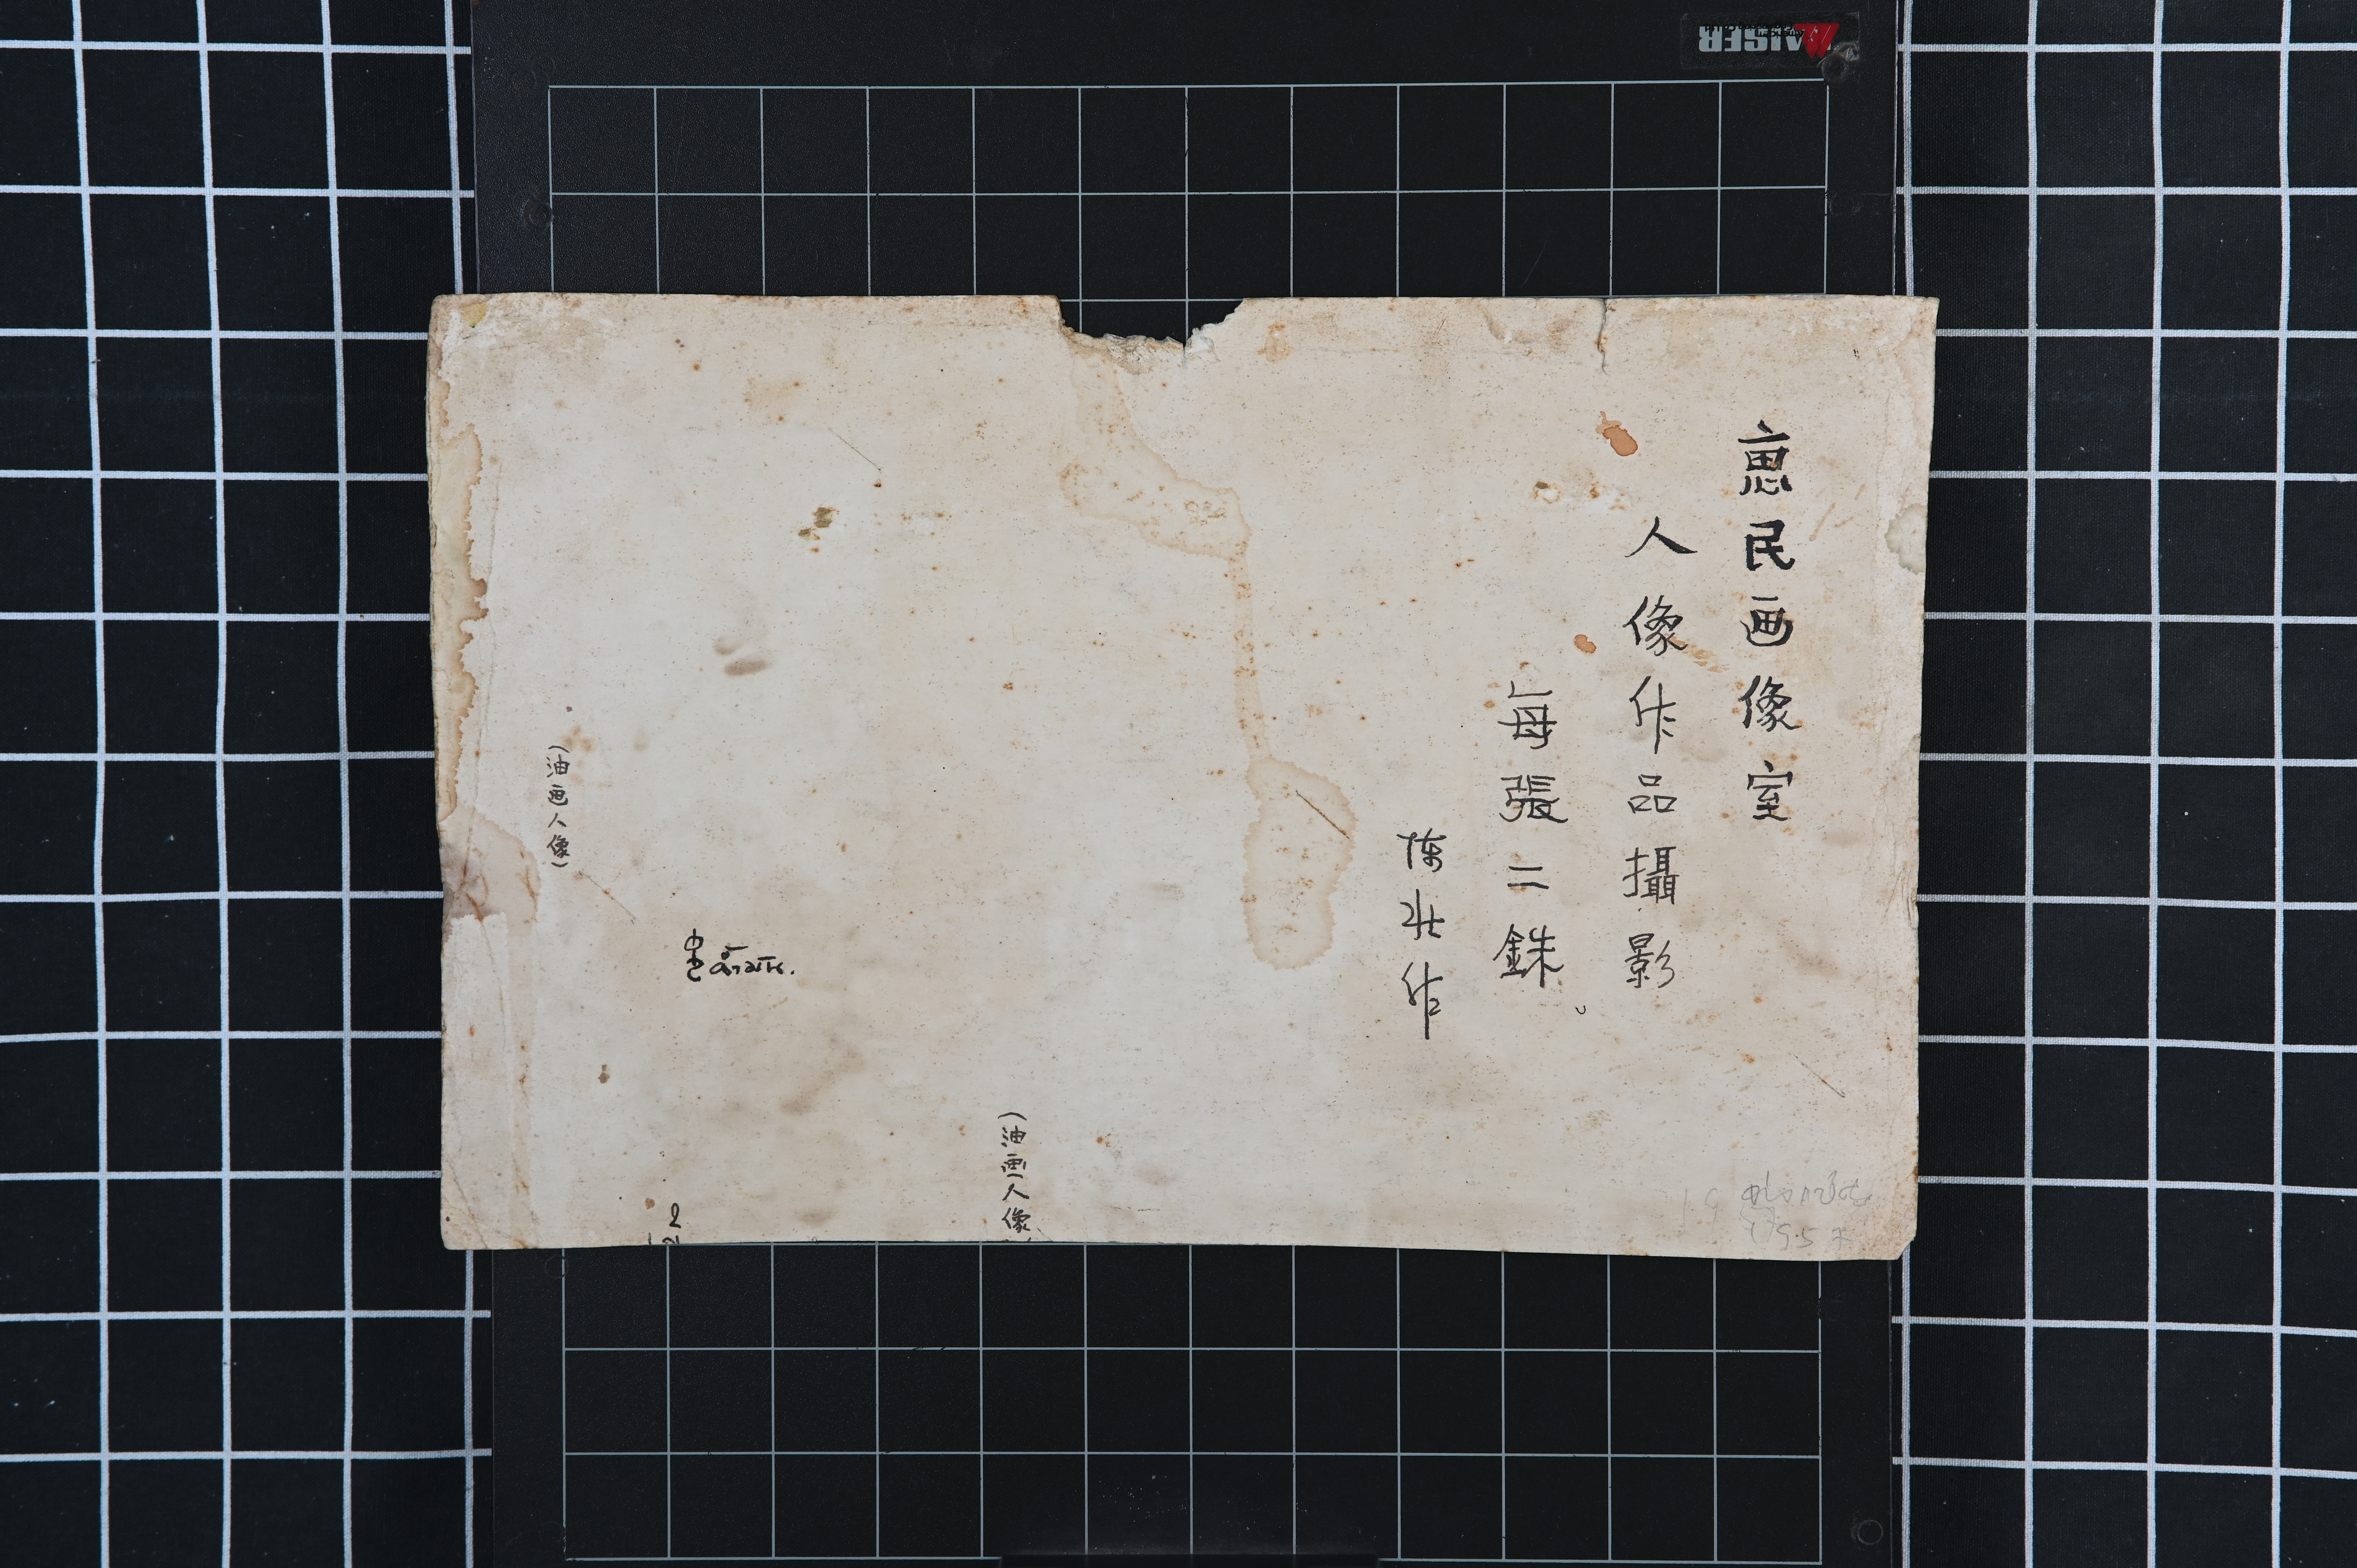 惠民画像室
人像作品攝影
每張二銖
陳壯作
(油画人像)
(油画人像
2
KAISER